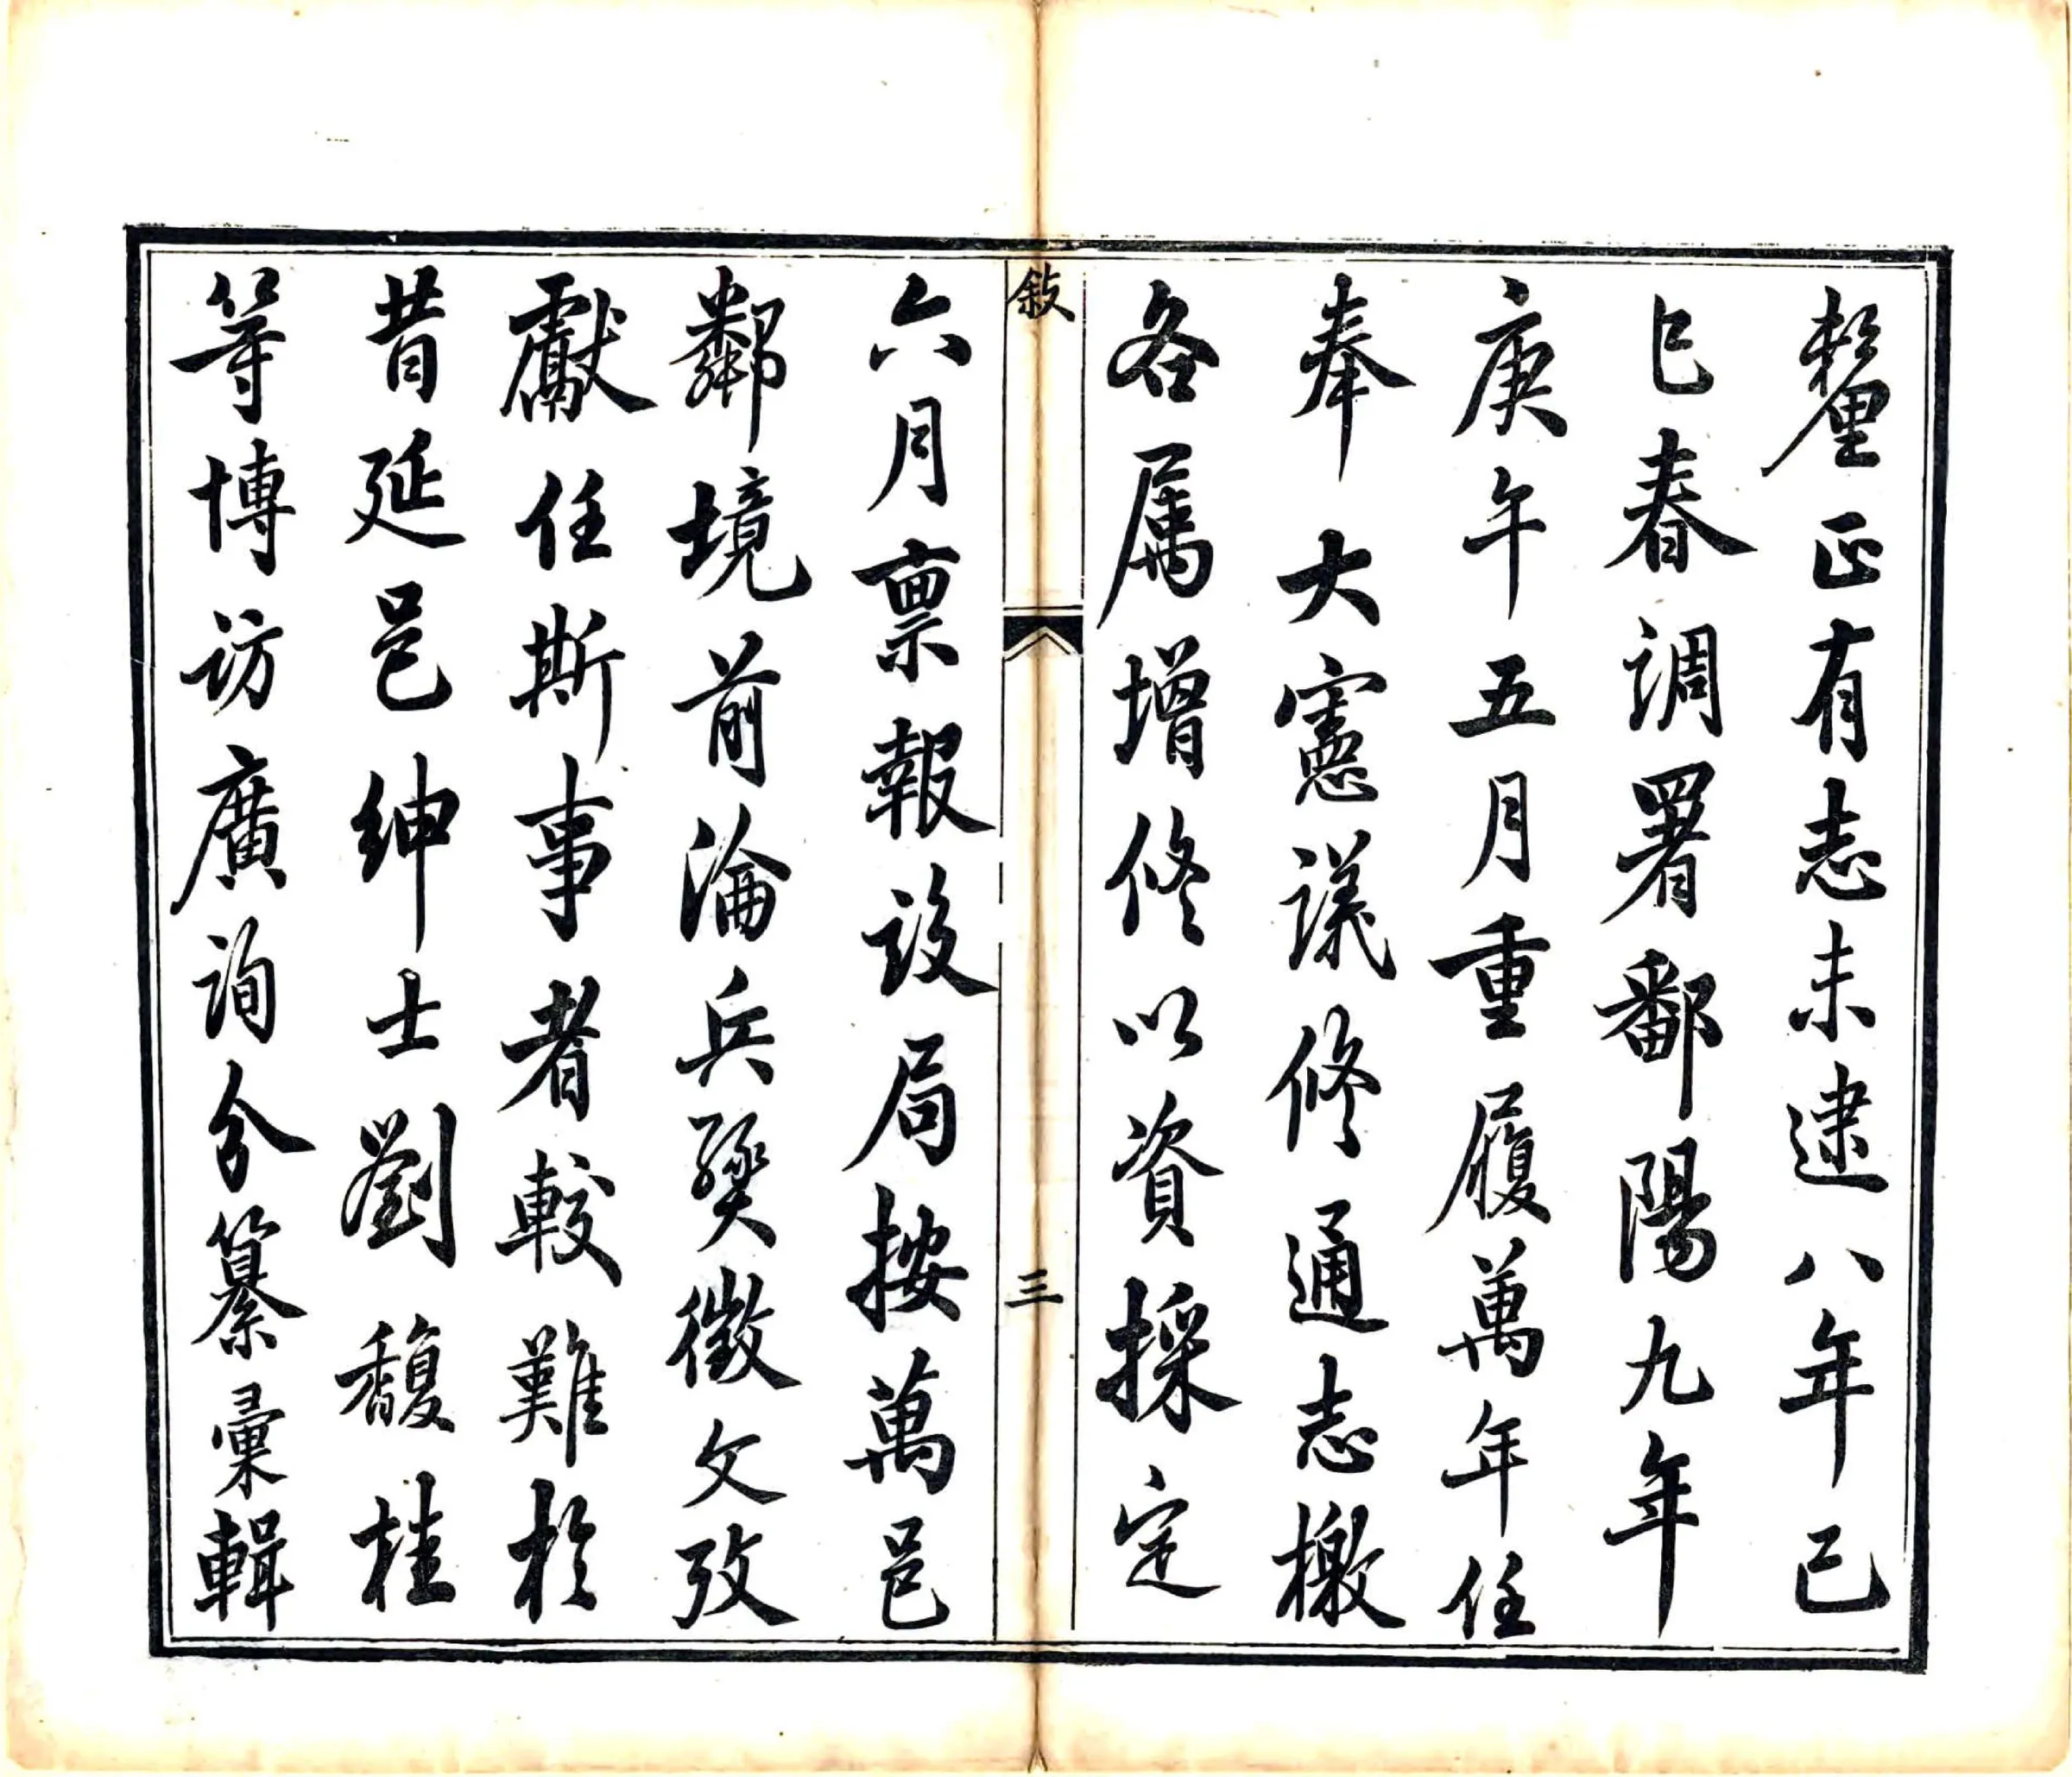 釐正有志未逮八年己
巳春調署鄱陽九年
庚午五月重履萬年任
奉大憲議修通志檄
各属增修以資採定
敘
三
六月禀報設局按萬邑
鄰境前淪兵燹徵文攷
獻任斯事者較難於
昔延邑紳士劉馥桂
等博访廣詢分纂彙輯